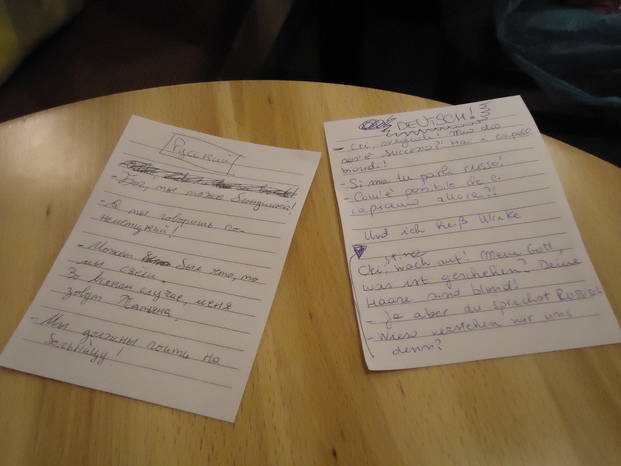 Русский
- Боже, ты тоже блондинка!
- А ты говоришь по-
немецкий!
- Может был что, то
мы спели.
Во всяком случае, меня
зовут Татьяна.
- Мы должны поити на
больницу!
DEUTSCH!
- Cki, svegliati! Mio dio
cos'è successo?! Hai i capelli
biondi!
- Sì ma tu parli russo!
- Com'è possibile che ci
capiamo allora?!
Und ich heiß Ulrike
Cki, wach auf! Mein Gott,
was ist geschehen? Deine
Haare sind blond!
- Ja aber du sprichst Russisch
- Wieso verstehen wir uns
denn?